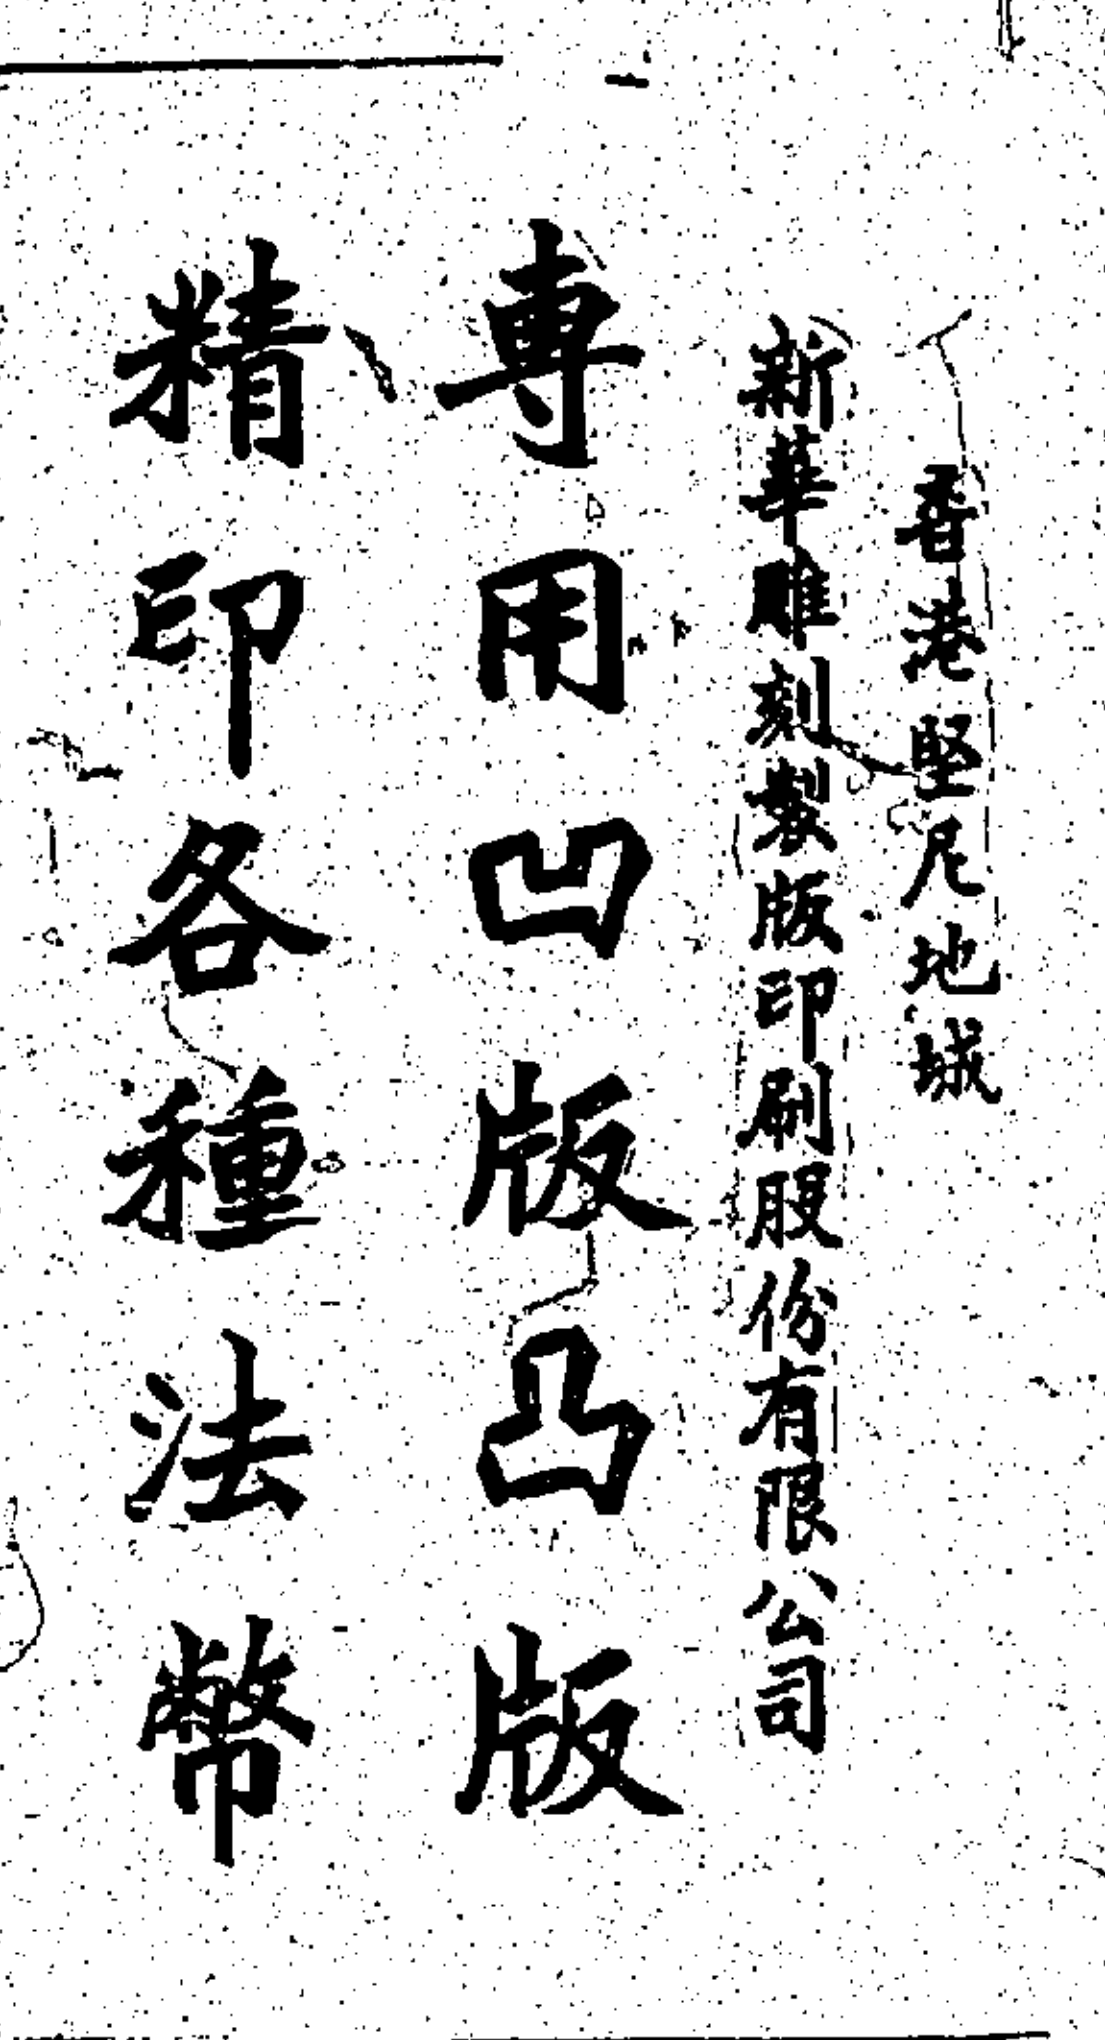 香港堅尼地城
新華雕刻製版印刷股份有限公司
專用凹版凸版
精印各種法幣